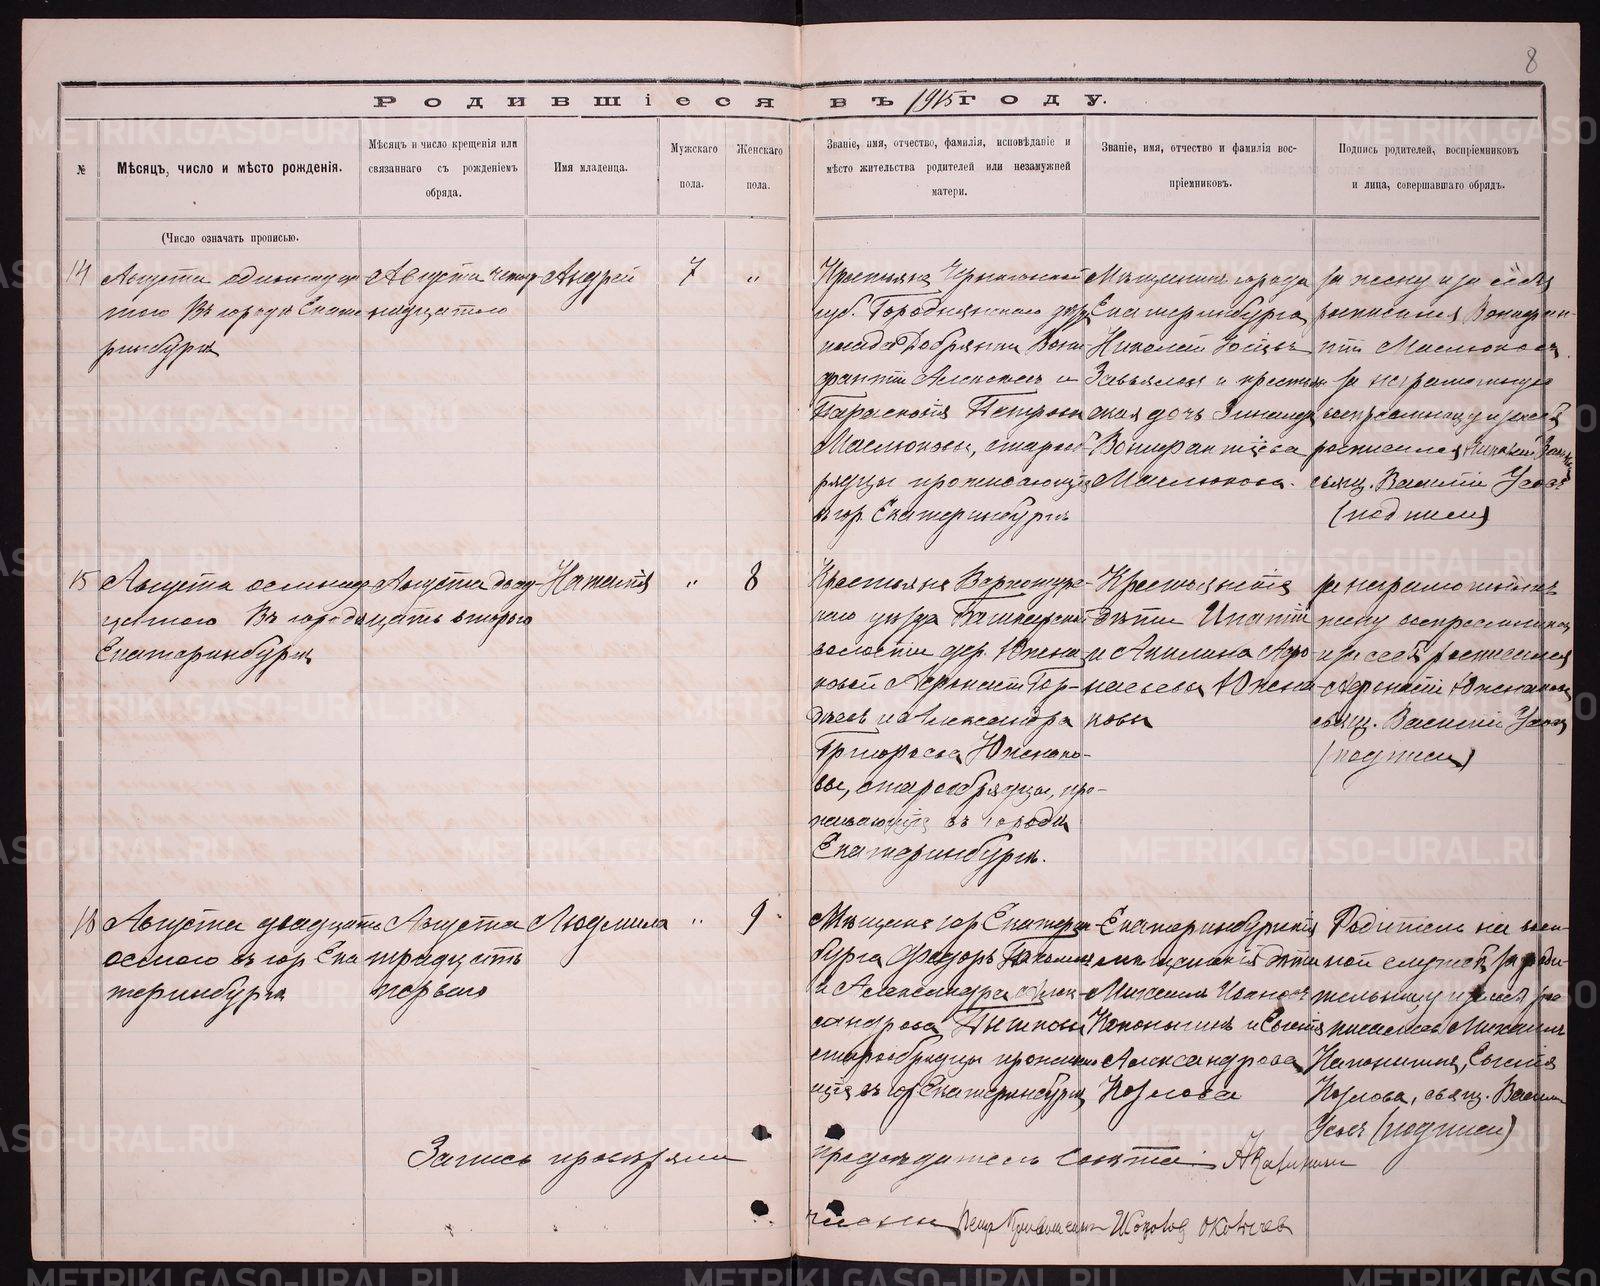 8
Родившіеся въ 1915 году.
№
Мѣсяцъ, число и мѣсто рожденія.
Мѣсяцъ и число крещенія или
связаннаго съ рожденіемъ
обряда.
Имя младенца.
Мужскаго
пола.
Женскаго
пола.
Званіе, имя, отчество, фамилія, исповѣданіе и
мѣсто жительства родителей или незамужней
матери.
Званіе, имя, отчество и фамилія вос-
пріемниковъ.
Подпись родителей, воспріемниковъ
и лица, совершавшаго обрядъ.
(Число означать прописью.
14
Августа одиннадца
таго Въ городѣ Екате
ринбургѣ
Августа четыр-
надцатаго
Андрей
7
"
Крестьяне Черниговской
губ. Городнянскаго уѣзд
посада Добрянки Вони-
фантій Алексѣевъ и
Параскевія Петрова
Маслюковы, старооб-
рядцы проживающіе
въ гор. Екатеринбургѣ
Мѣщанинъ города
Екатеринбурга
Николай
Завьяловъ и крестьян
ская дочь Зинаида
Вонифантіева
Маслюкова.
за жену и за себя
росписался Вонифан-
тій Маслюковъ.
за неграмотную
воспріемницу и за себя
росписался Николай
свящ. Василій Усовъ
(подписи)
15
Августа осьмнад-
цатаго Въ городѣ
Екатеринбургѣ
Августа двад-
цать второго
Наталія
"
8
Крестьяне Верхотурс-
каго уѣзда
волости дер. Южа-
ковой Аѳонасій Гор-
дѣевъ и Александра
Григорьева Южако-
вы, старообрядцы, про-
живающіе въ городѣ
Екатеринбургѣ.
Крестьянскіе
дѣти Ипатій
и Акилина Аѳо-
насьевы Южа-
ковы
за неграмотныхъ
жену воспріемниковъ
и за себя росписался
Аѳонасій Южаковъ
свящ. Василій Усовъ
(подписи)
16
Августа двадцать
осмого въ гор. Ека
теринбургѣ
Августа
тридцать
перваго
Людмила
"
9
Мѣщане гор. Екатерин-
бурга Ѳедоръ
и Александра Алек-
сандрова
старообрядцы прожива
щіе въ гор. Екатеринбургѣ
Екатеринбургскіе
мѣщанскіе дѣти
Михаилъ Ивановъ
Кононыгинъ и Евгенія
Александрова
Козлова
Родитель на воен-
ной службѣ, за роди-
тельницу и за себя рос
писались Михаилъ
Евгенія
Козлова, свящ. Василій
Усовъ (подписи)
Запись провѣряли
предсѣдатель совѣта
члены
METRIKI.GASO-URAL.RU